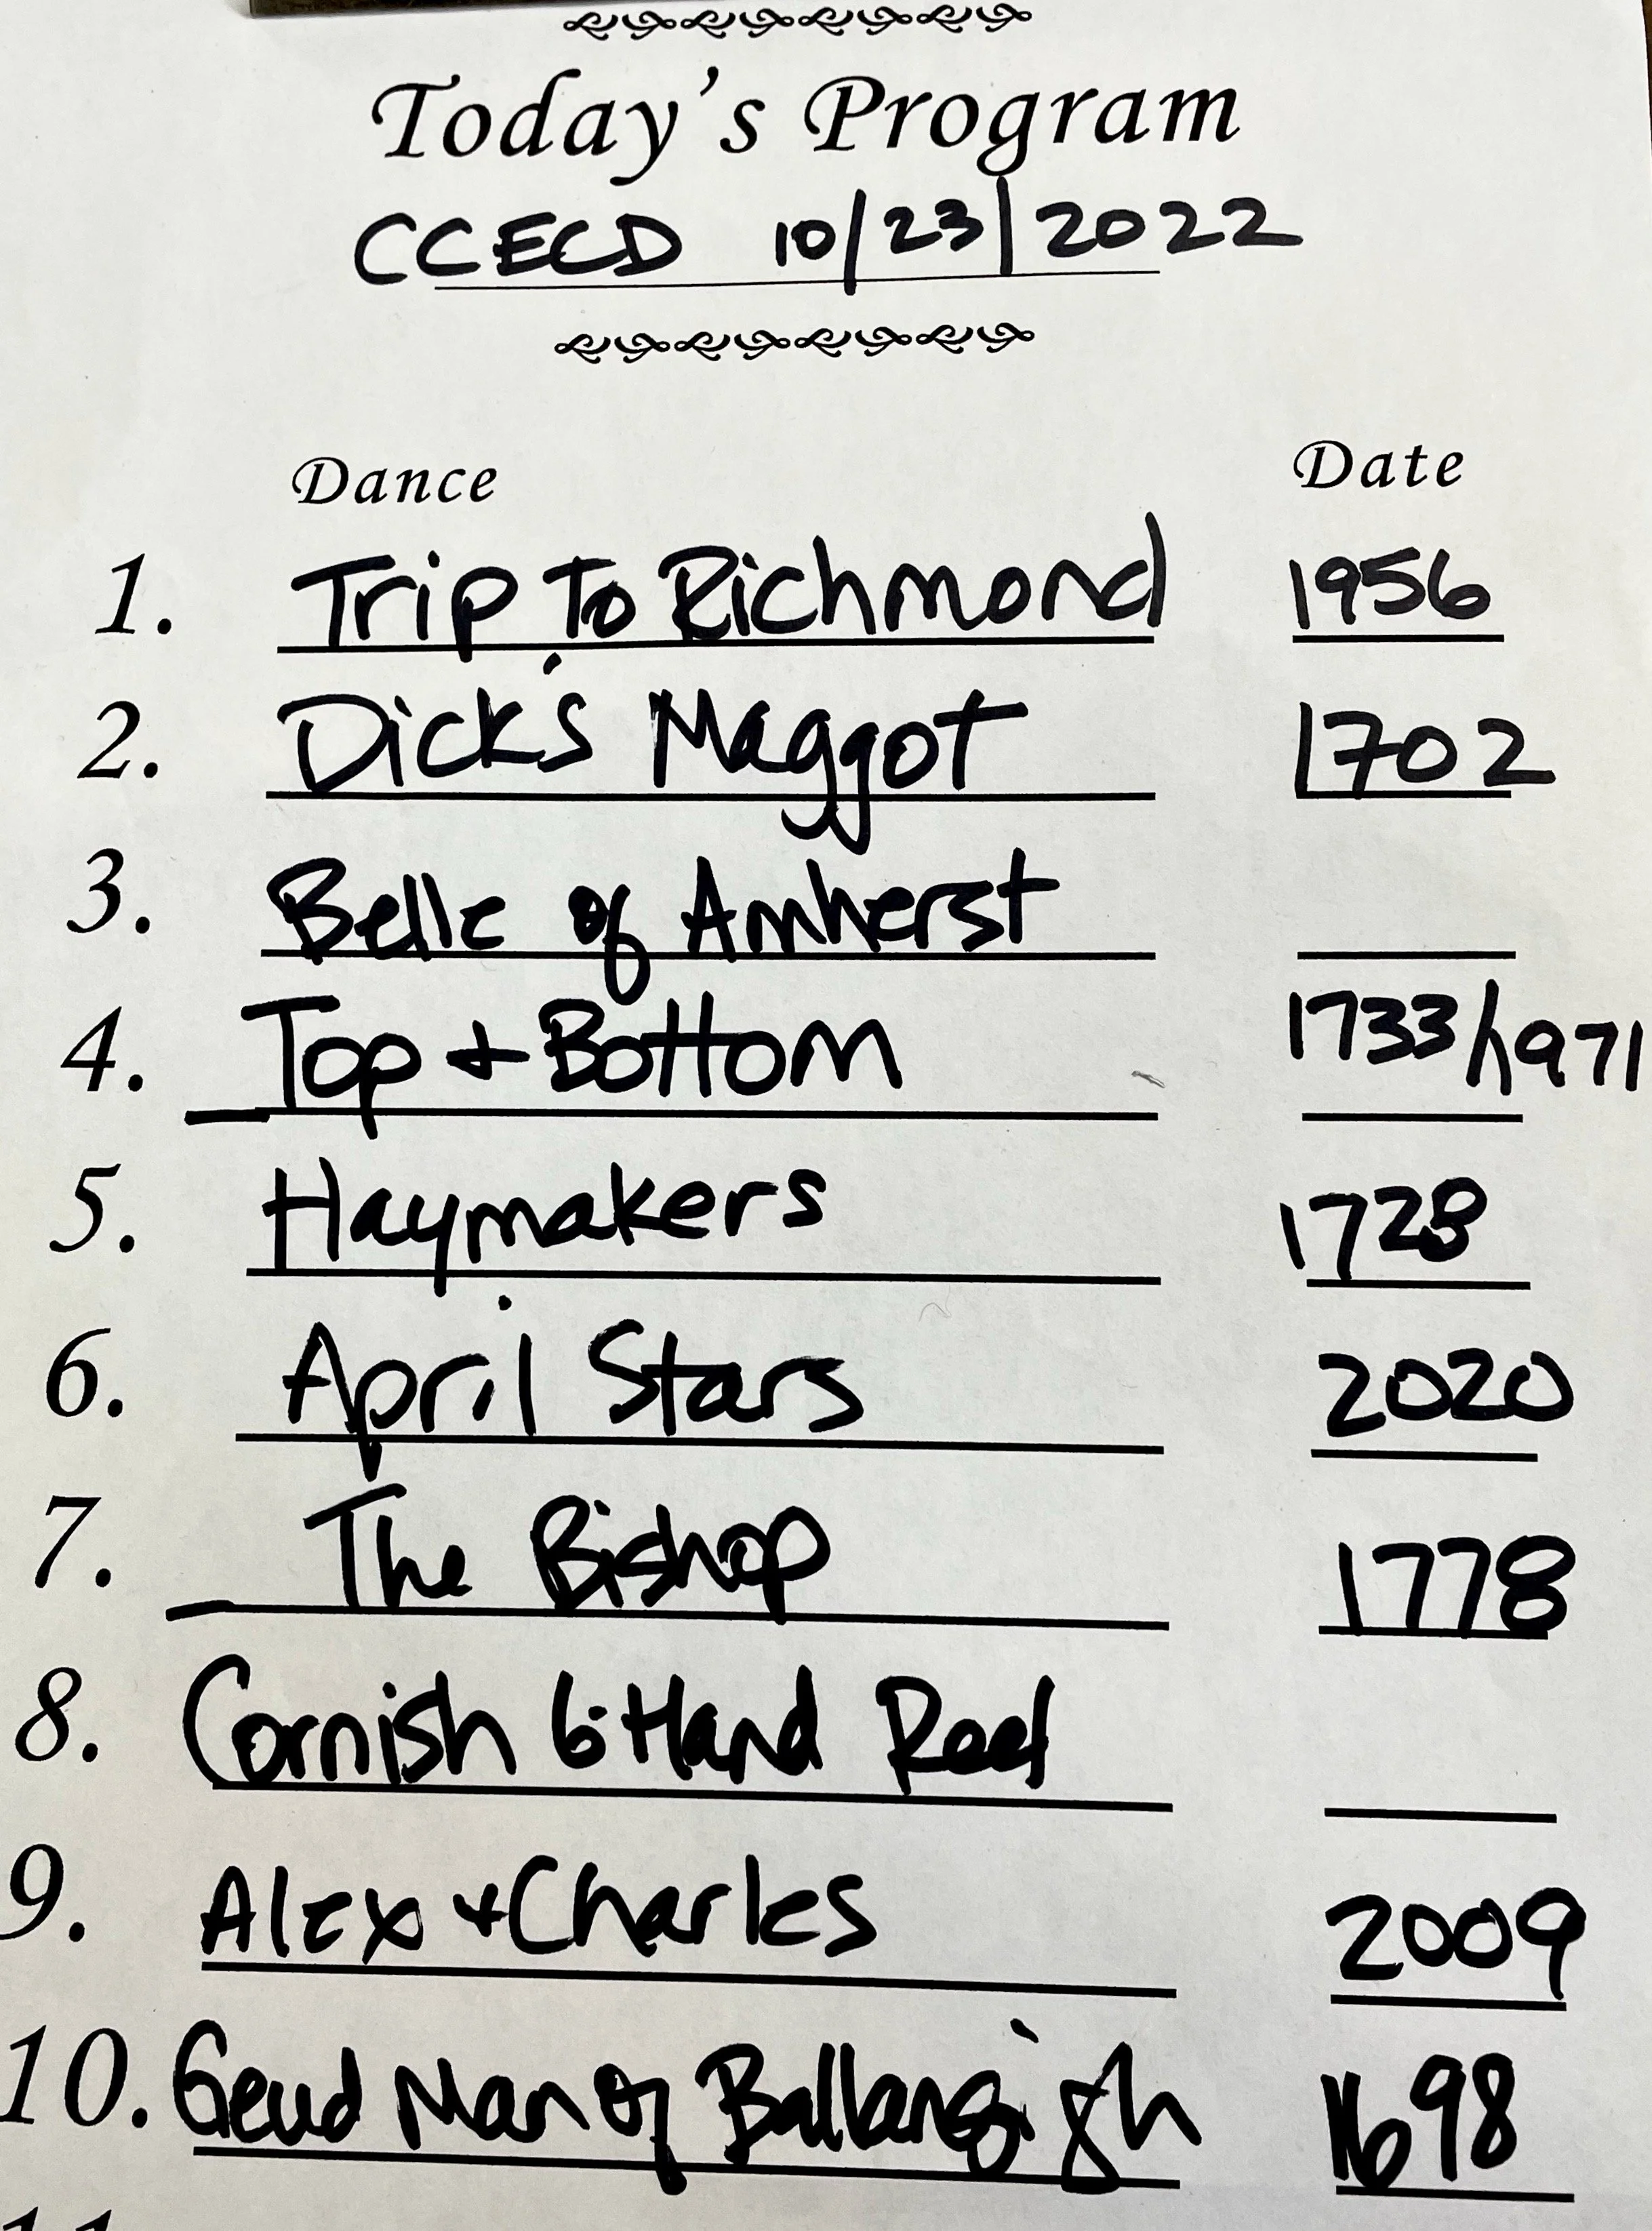 Today's Program
CCECD 10/23/2022
Dance Date
1. Trip To Richmond 1956
2. Dick's Maggot 1702
3. Belle of Amherst
4. Top + Bottom 1733/1971
5. Haymakers 1728
6. April Stars 2020
7. The Bishop 1778
8. Cornish 6-Hand Reel
9. Alex + Charles 2009
10. Geud Man of Ballangigh 1698